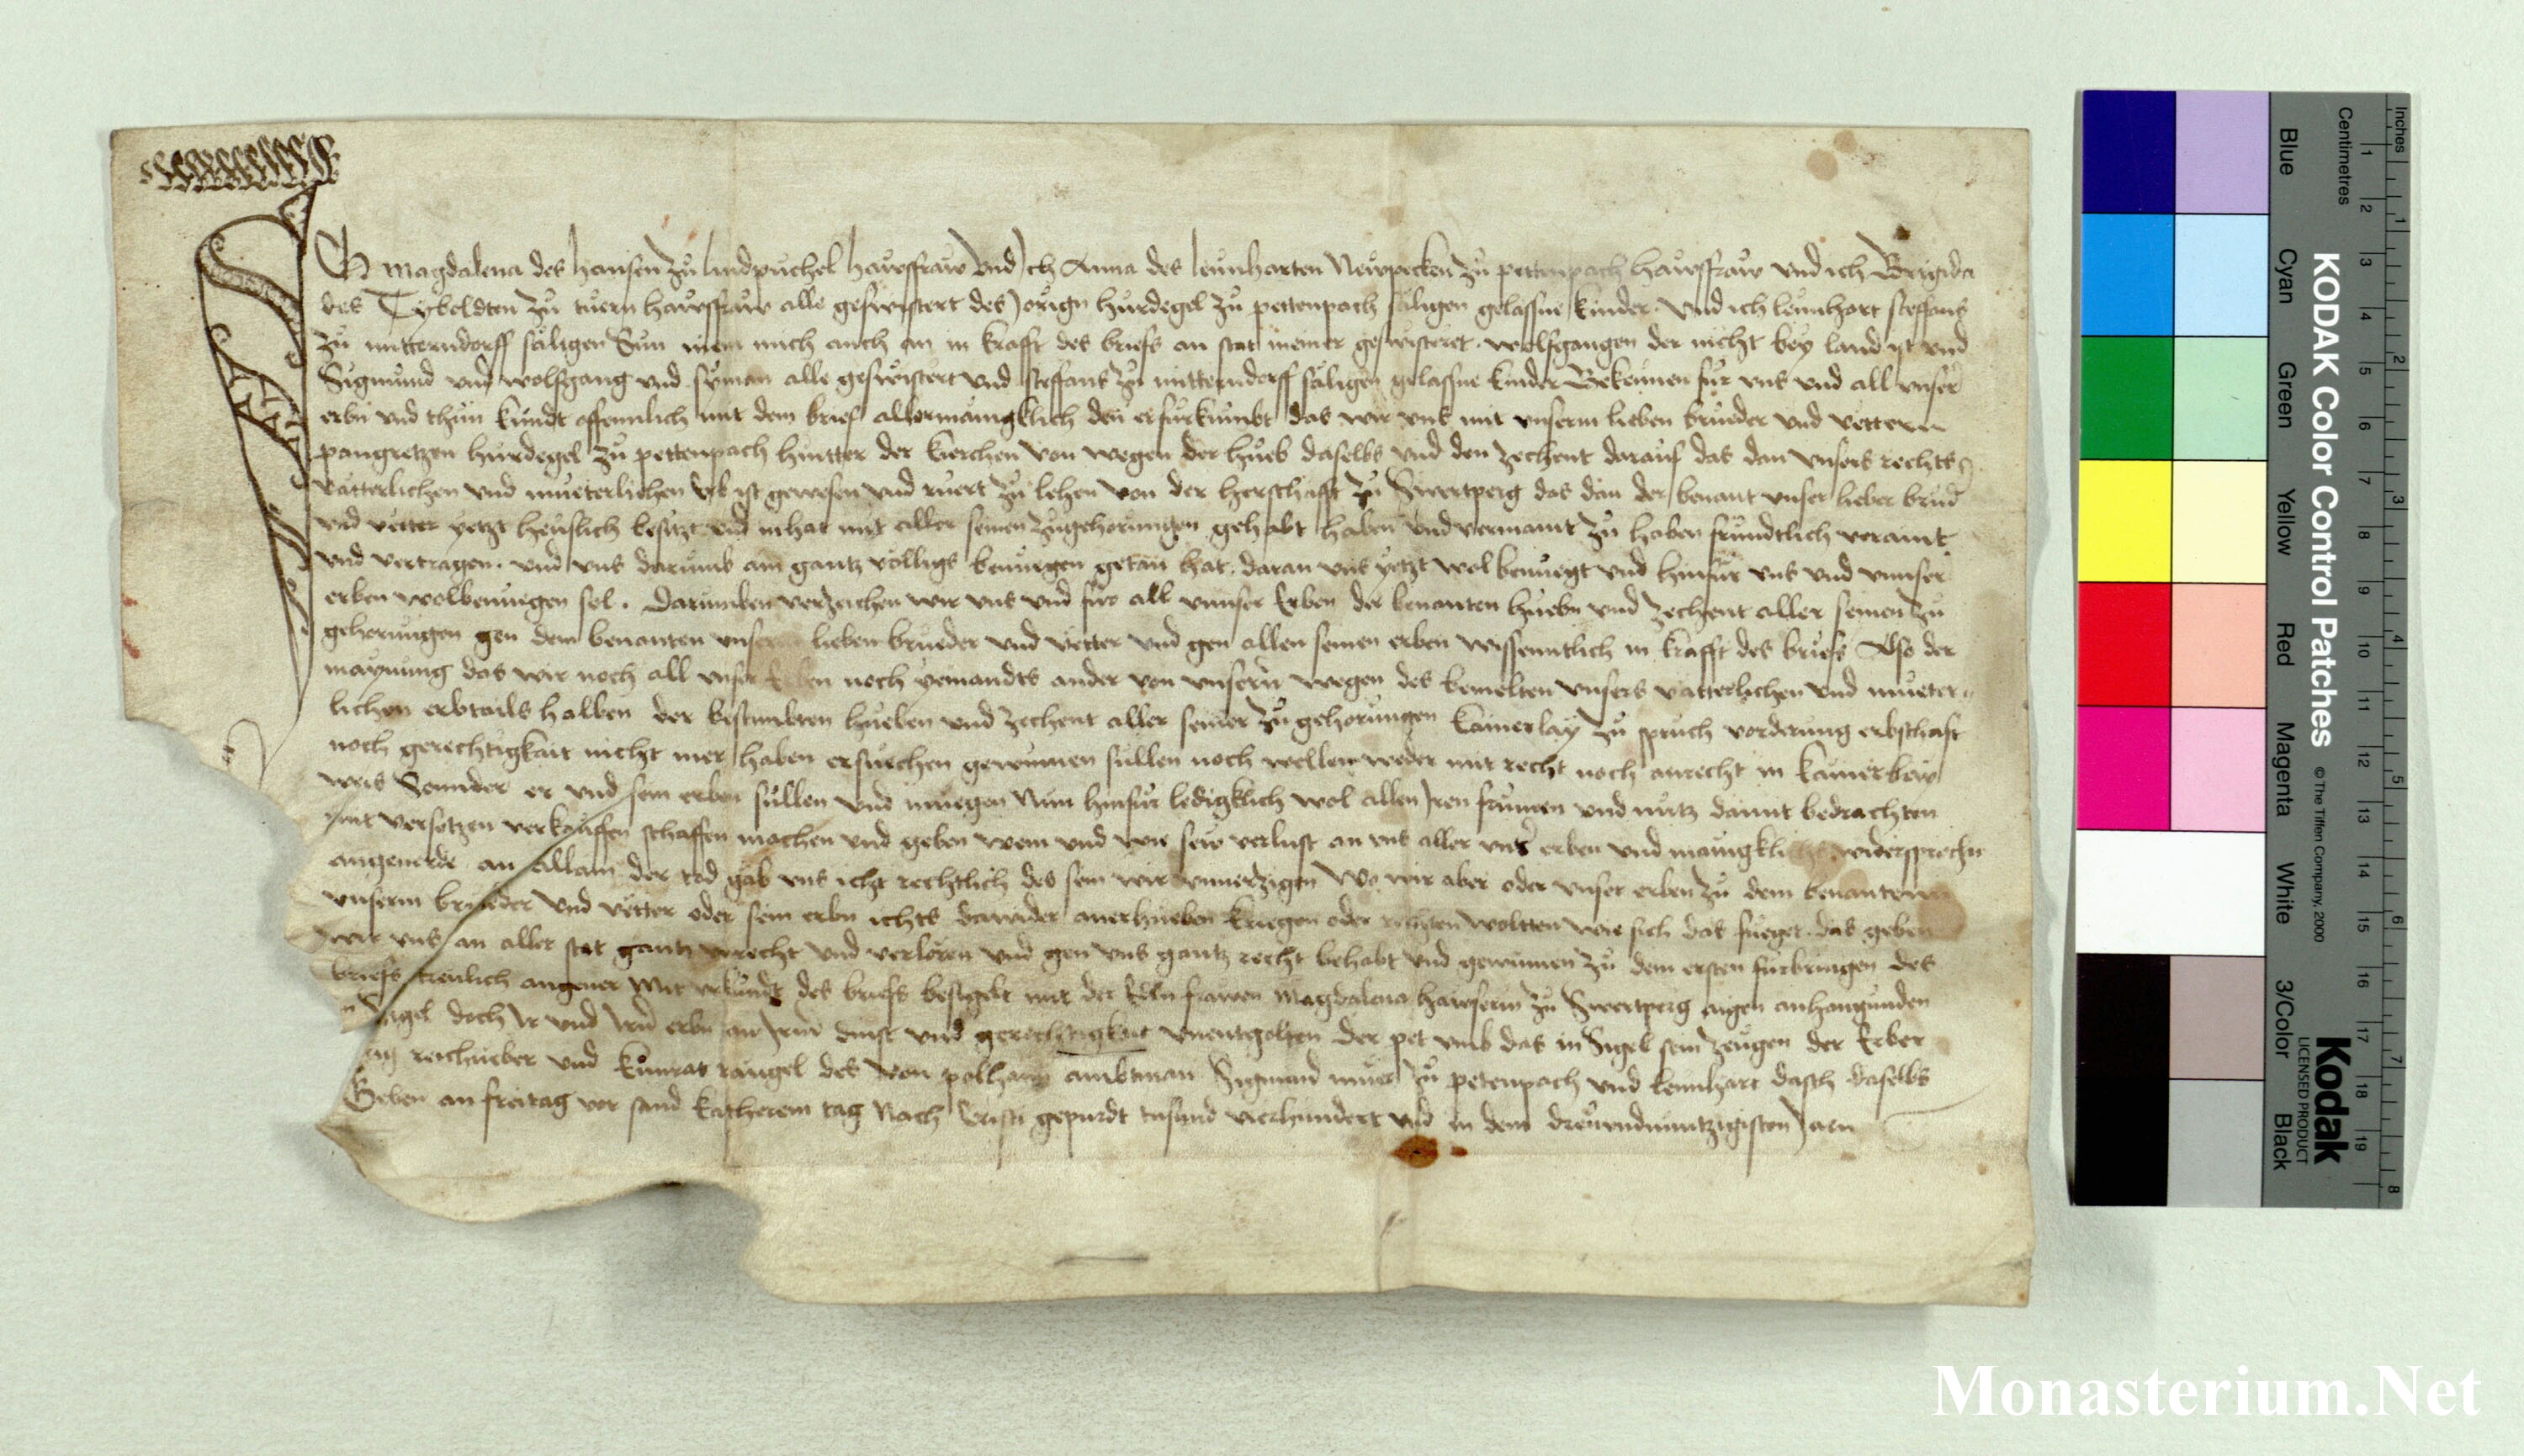 Ich Magdalena des hansen zů lindpuchel hawsffraw vnd Ich Anna des leunharten Newpecken zů pettenpach hawsffraw vnd ich Brigida
des Tyboldten zů tuern hawsffraw alle geswistert des Jorign hurdegel zů pettenpach säligen gelassne kinder. Vnd ich leunhart steffans
zů mitterndorff säligen Sun nem mich auch an in krafft des briefs an stat meiner geswisteret. wolfgangen der nicht bey land ist vnd
Sigmund vnd wolfgang vnd syman alle geswistert vnd steffans zů mitterndorff säligen gelassne kinder Bekennen für vns vnd all vnser
erbn vnd thun kundt offennlich mit dem brief allermänigklich den er fürkumbt das wir vns mit vnserm lieben brueder vnd vettern
pangretzen hurdegel zů pettenpach hintter der kierchen von wegen der hueb daselbs vnd den zechent darauf das dan vnsers rechts
vatterlichen vnd mueterlichen erb ist gewesen vnd ruert zů lehen von der herschafft zů Swertperg das dan der benant vnser lieber brud
vnd vetter yetzt heuslich besitzt vnd inhat mit aller seinen zůgehorungen gehabt haben vnd vermaint zů haben frundtlich veraint
vnd vertragen. vnd vns darumb ain gantz völligs benuegen getan hat. daran vns yetzt wol benuegt vnd hinfür vns vnd vnnser
erben wolbenuegen sol. Darumben verzeichen wir vns vnd für all vnnser Erben der benanten huebn vnd zechent aller seinen zů
gehorungen gen dem benanten vnserm lieben brueder vnd vetter vnd gen allen seinen erben wissenntlich in krafft des briefs Also der
maynung das wir noch all vnser Erben noch yemandts ander von vnsern wegen des bemelten vnsers vatterlichen vnd mueter
lichen erbtails halben der bestimbten hueben vnd zechent aller seiner zůgehorungen kainerlay zů spruch vorderung erbschaft
noch gerechtigkait nicht mer haben ersuechen gewinnen sullen noch wellen weder mit recht noch anrecht in kainerlay
weis Sonnder er vnd sein erben sullen vnd muegen Nun hinfür ledigklich wol allen Iren frumen vnd nutz damit bedrachten
mit versetzen verkauffen schaffen machen vnd geben wem vnd wie sew verlust an vns aller vnser erben vnd mänigklichs widersprechn
angeuerde an allain der tod gäb vns icht rechtlich des sein wir vnuerzigen Wo wir aber oder vnser erben zů dem benantem
vnserm brueder vnd vetter oder sein erbn ichts dawider anerhueben kriegen oder rechten woltten wie sich das fueget. das geben
wir vns an aller stat gantz vnrecht vnd verloren vnd gen vns gantz recht behabt vnd gewunnen zů dem ersten fürbringen des
briefs treulich angeuer Mit vrkundt des briefs besigelt mit der Edln frawen Magdalena hawserin zů Swertperg aigen anhangunden
Insigel doch Ir vnd Irn erbn an Irm dinst vnd gerechtigkait vnentgolten Der pet vmb das in Sigel sein zeugen der Erber
reichueber vnd kůnrat rangel des von polhaim ambtman Sigmund zů petenpach vnd leunhart dasch daselbs
Geben an freitag vor sand katherein tag Nach Cristi gepurdt tausund vierhundert vnd in dem drewundnuntzigisten Jaren
KODAK Color Control Patches
© The Tiffen Company, 2000
Kodak
LICENSED PRODUCT
Inches
Centimetres
1 2 3 4 5 6 7 8 9 10 11 12 13 14 15 16 17 18 19
1 2 3 4 5 6 7 8
Blue
Cyan
Green
Yellow
Red
Magenta
White
3/Color
Black
Monasterium.Net